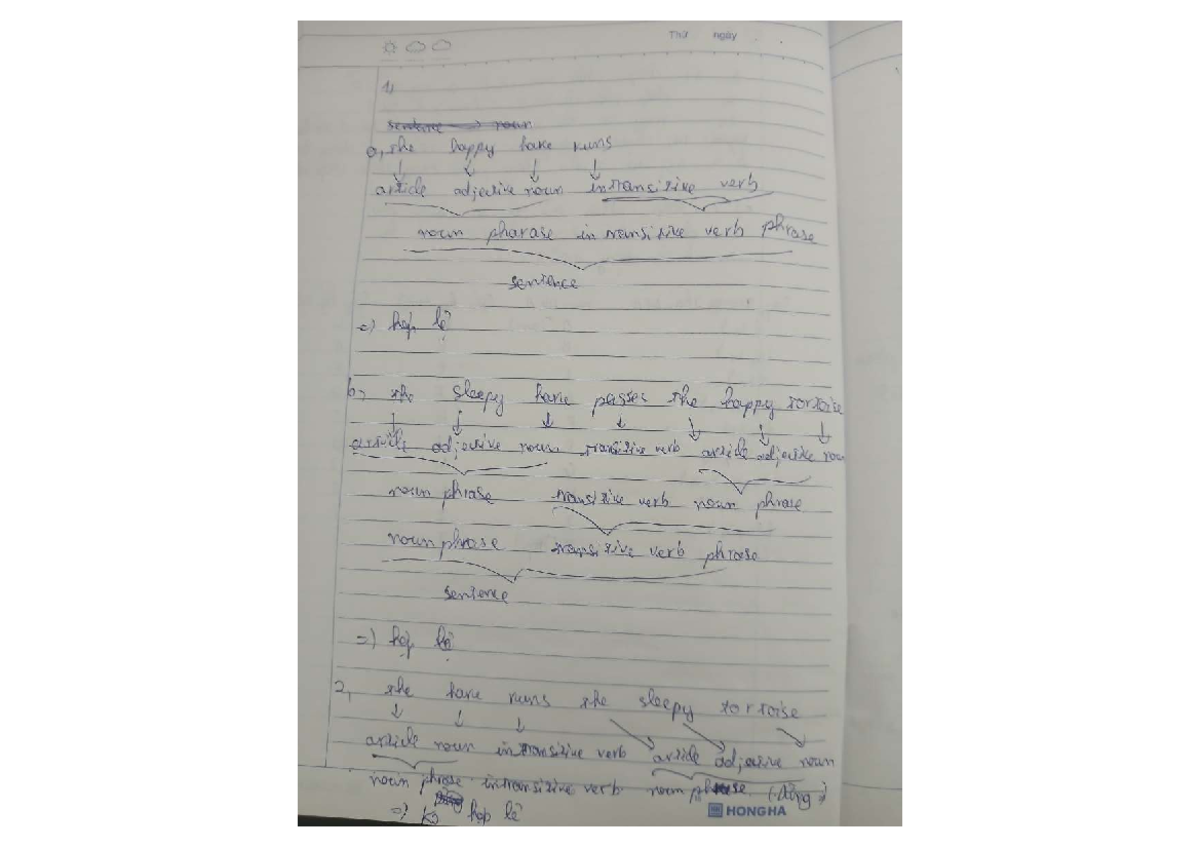 Thứ ngày
1,
sentence → noun
a, the happy hare runs
article adjective noun intransitive verb
noun pharase intransitive verb phrase
sentence
=) hợp lệ
b, the sleepy hare passes the happy tortoise
article adjective noun transitive verb article adjective noun
noun phrase transitive verb noun phrase
noun phrase transitive verb phrase
sentence
=) hợp lệ
2, the hare runs the sleepy tortoise
article noun intransitive verb article adjective noun
noun phrase intransitive verb noun phrase (dừng)
=) k hợp lệ
HONGHA